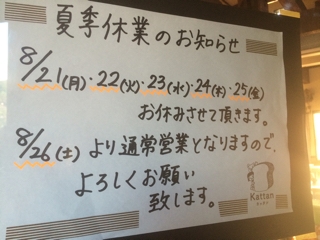 夏季休業のお知らせ
8/21(月)・22(火)・23(水)・24(木)・25(金)
お休みさせて頂きます。
8/26(土)より通常営業となりますので、
よろしくお願い
致します。
Kattan